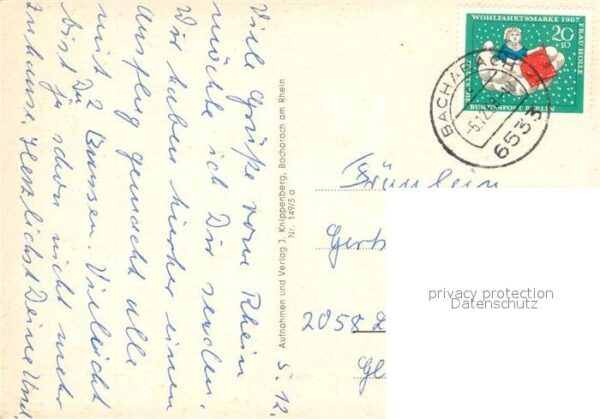 Viele Grüße vom Rhein
möchte ich Dir senden.
Wir haben hierher einen
Ausflug gemacht alle
mit 2 Bussen. Vielleicht
bist Du ja schon nicht mehr
zuhause. Herzlichst Deine
5. 12.
Aufnahmen und Verlag J. Knippenberg, Bacharach am Rhein
Nr. 149/5 a
WOHLFAHRTSMARKE 1967
FRAU HOLLE
20
+10
DEUTSCHE
BUNDESPOST BERLIN
BACHARACH
6533
Fräulein
Gert
2058
privacy protection
Datenschutz